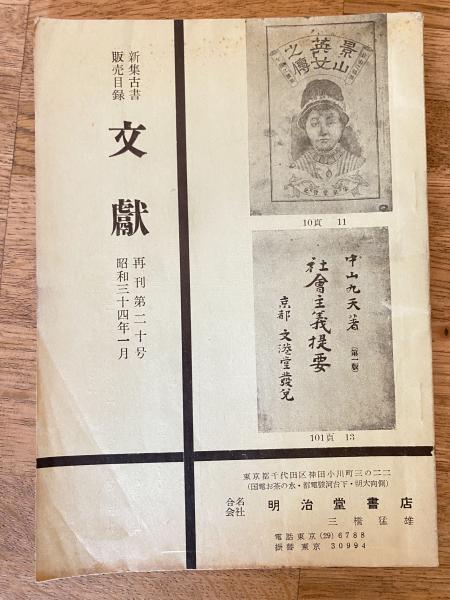 新集古書
販売目録
文献
再刊第二十号
昭和三十四年一月
景山
英女
之傳
10頁 11
中山九天著
(第一版)
社會主義提要
京都 文港堂發兌
101頁 13
東京都千代田区神田小川町三の二二
(国電お茶の水・都電駿河台下・明大向側)
合名
会社
明治堂書店
三橋猛雄
電話東京(29)6788
振替東京 30994